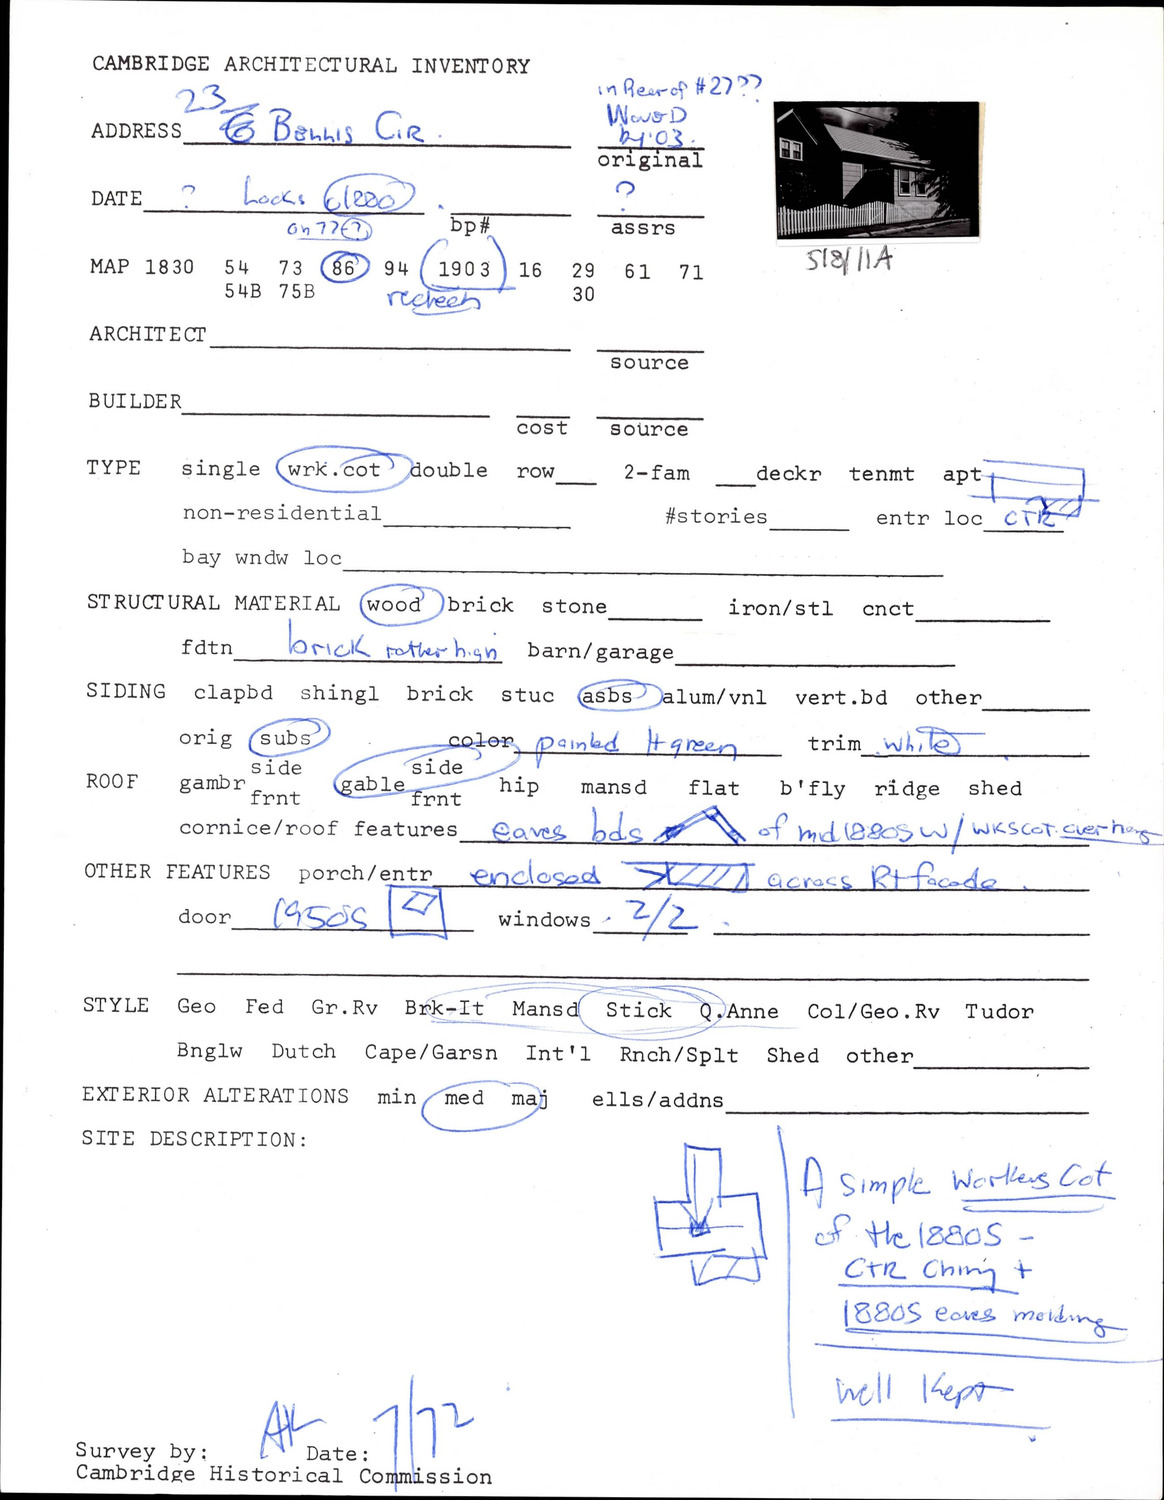 CAMBRIDGE ARCHITECTURAL INVENTORY
in Rear of #27??
WOOD
by '03
original
ADDRESS 23 Bellis Cir.
DATE ? Looks c1880 ?
on 77(?) bp# assrs
MAP 1830 54 73 86 94 1903 16 29 61 71
54B 75B recheck 30
5/8/11A
ARCHITECT
source
BUILDER
cost source
TYPE single wrk.cot double row 2-fam deckr tenmt apt
non-residential #stories entr loc CTR
bay wndw loc
STRUCTURAL MATERIAL wood brick stone iron/stl cnct
fdtn brick rather high barn/garage
SIDING clapbd shingl brick stuc asbs alum/vnl vert.bd other
orig subs color painted lt green trim white
side side
ROOF gambr gable hip mansd flat b'fly ridge shed
frnt frnt
cornice/roof features eaves bds of mid 1880s w/ WKSCOT overhang
OTHER FEATURES porch/entr enclosed across Rt facade.
door 1950s windows 2/2
STYLE Geo Fed Gr.Rv Brk-It Mansd Stick Q.Anne Col/Geo.Rv Tudor
Bnglw Dutch Cape/Garsn Int'l Rnch/Splt Shed other
EXTERIOR ALTERATIONS min med maj ells/addns
SITE DESCRIPTION:
A simple Workers Cot
of the 1880s -
CTR Chmy +
1880s eaves molding
Well Kept
Survey by: Date: 7/72
Cambridge Historical Commission